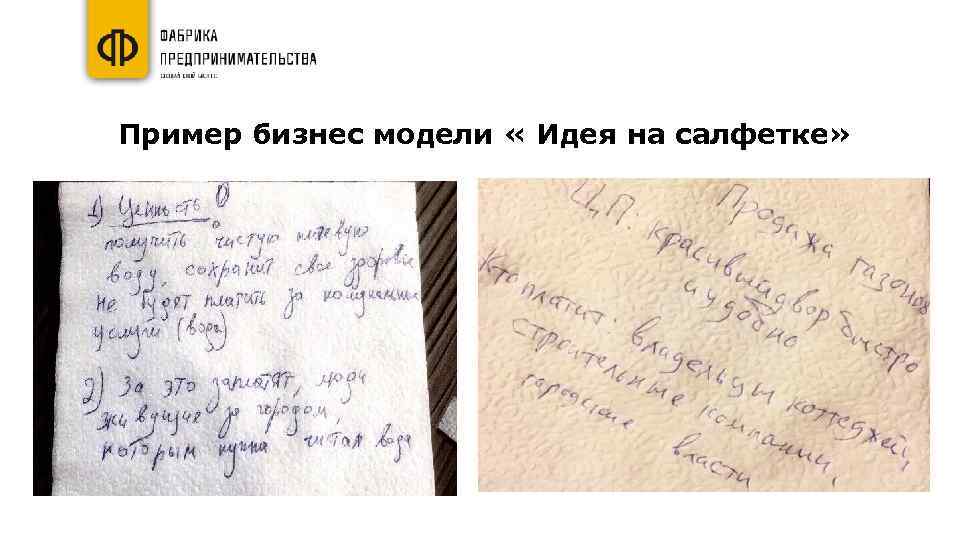 ФАБРИКА
ПРЕДПРИНИМАТЕЛЬСТВА
СОЗДАЙ СВОЙ БИЗНЕС
Пример бизнес модели « Идея на салфетке»
1) Ценность
получить чистую питьевую
воду, сохранит свое здоровье
не будет платить за комунальные
услуги (вода)
2) За это заплатят, люди
живущие за городом,
которым нужна чистая вода
Продажа газонов
Ц.П: красивый двор быстро
и удобно
Кто платит: владельцы коттеджей,
строительные компании,
городские власти